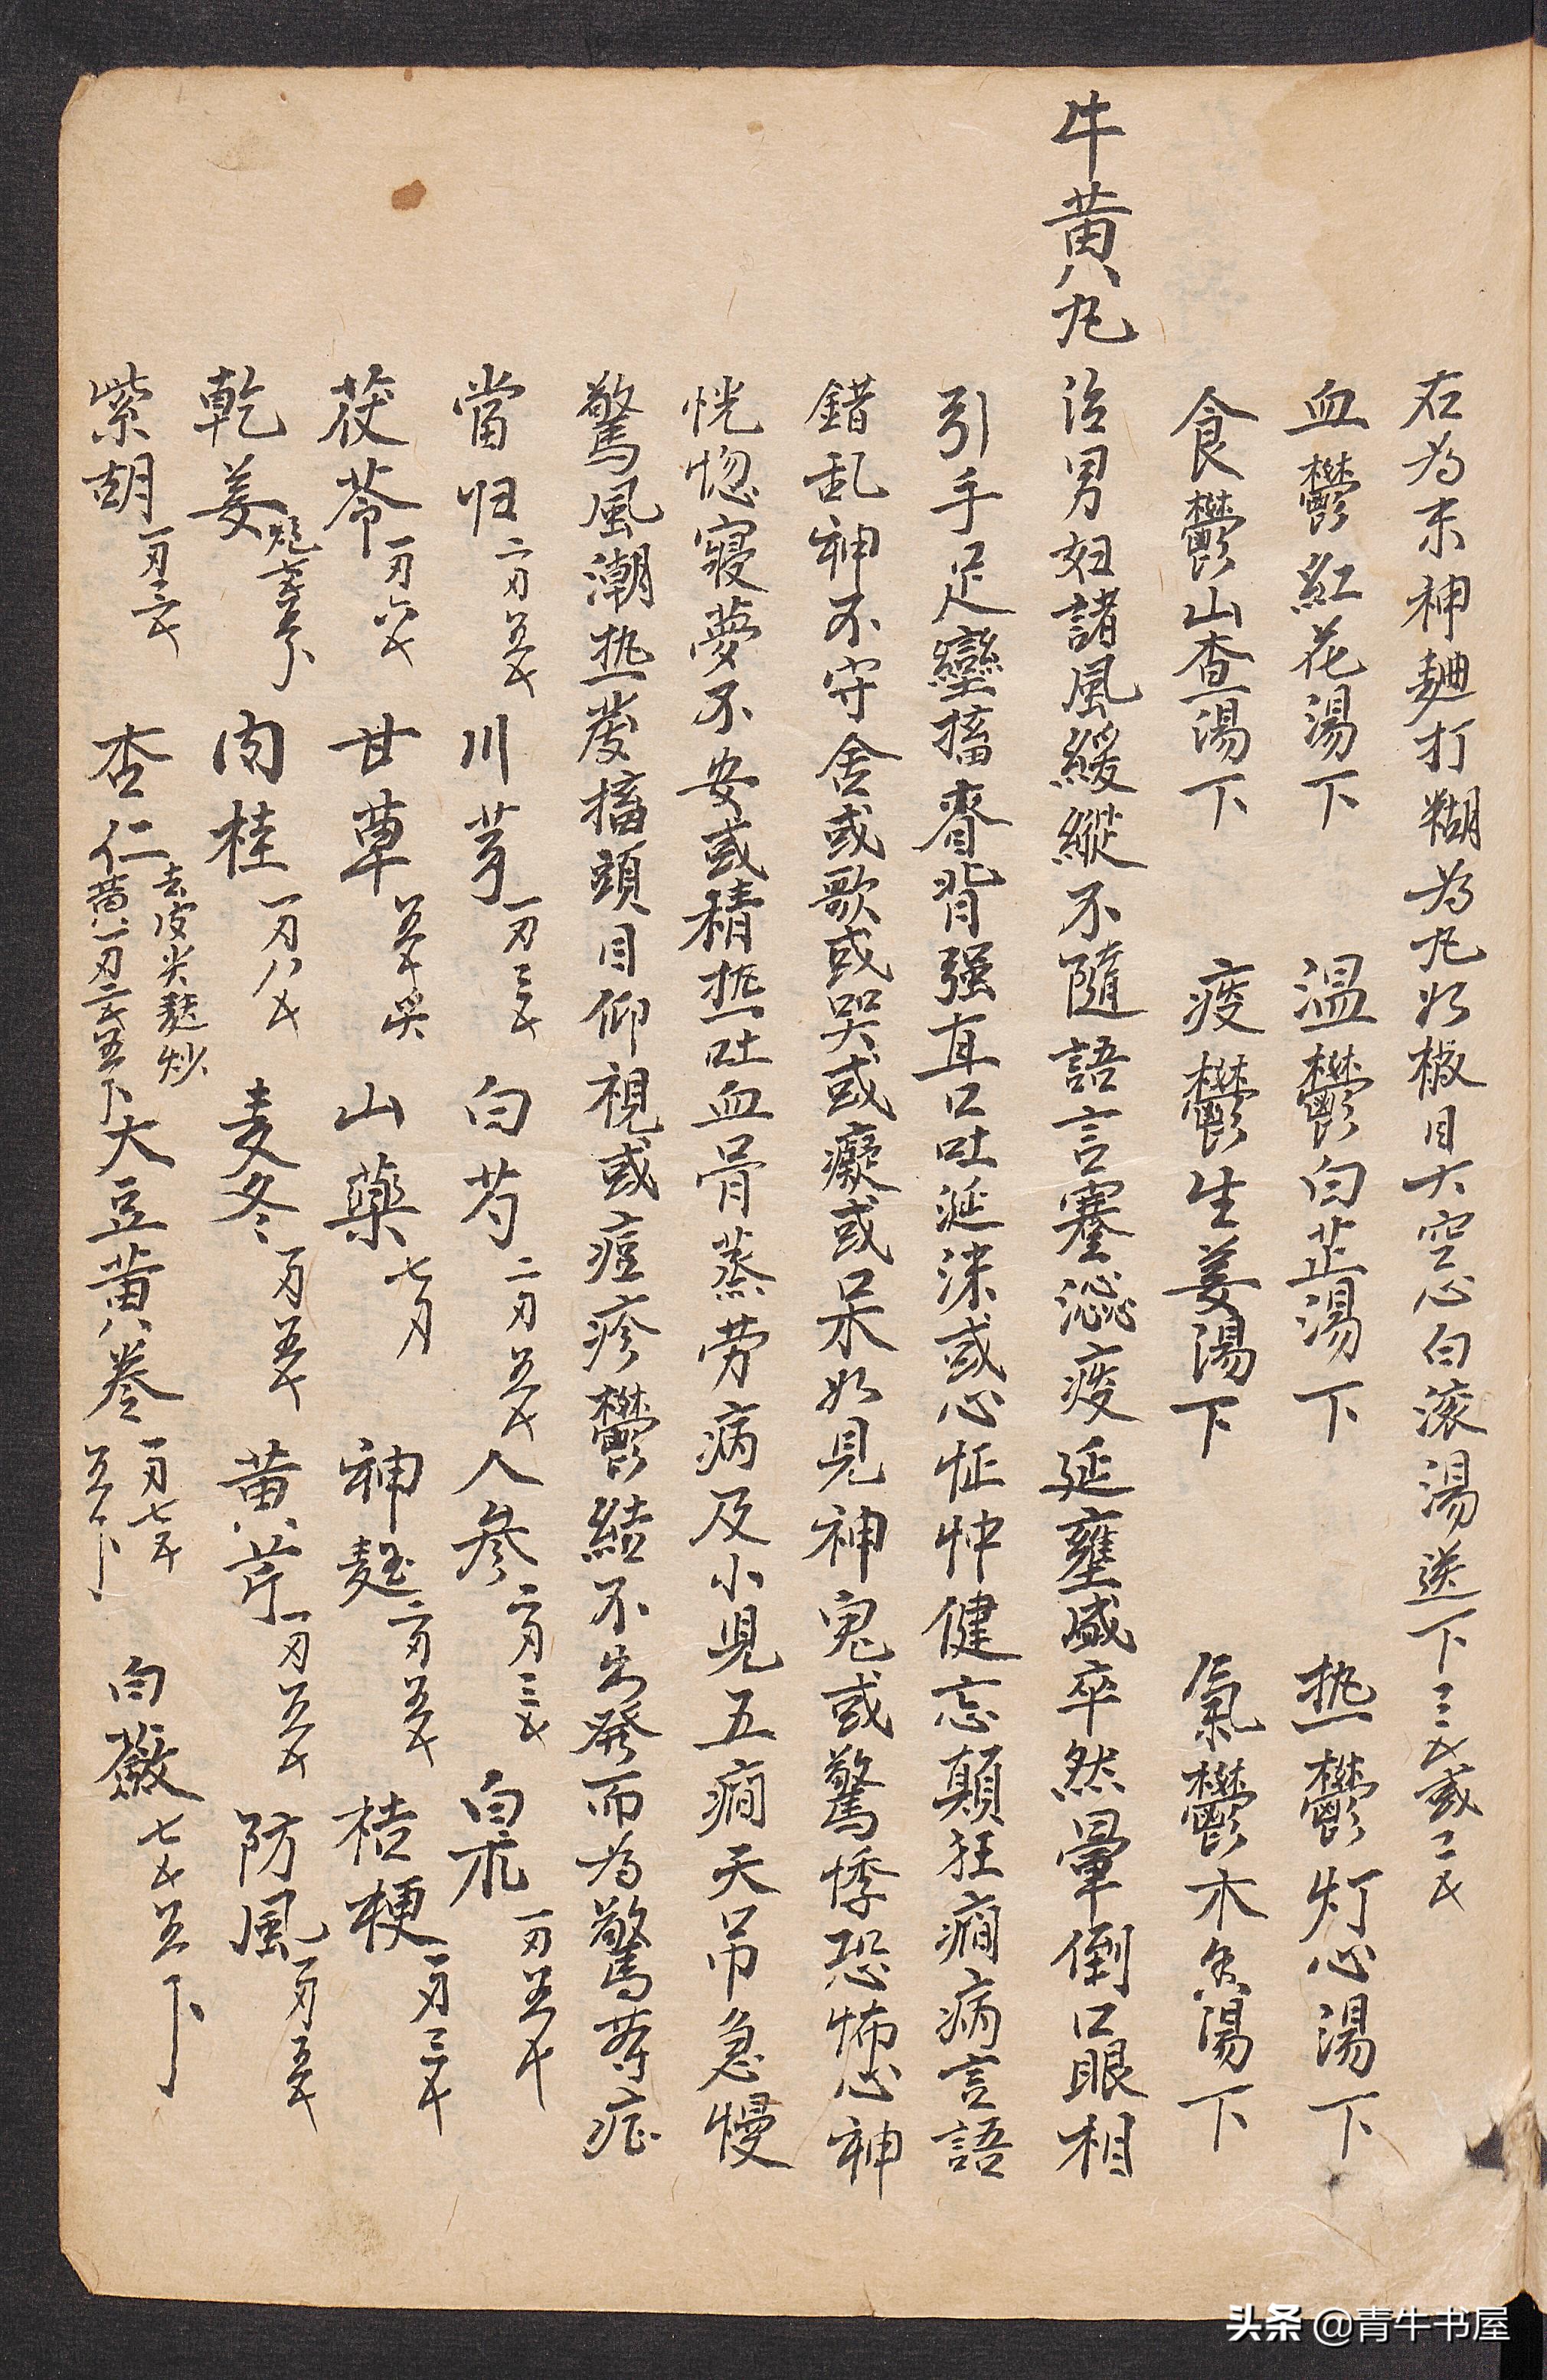 右为末神麯打糊为丸如椒目大空心白滚湯送下三戋或二戋
血鬱紅花湯下 温鬱白芷湯下 热鬱灯心湯下
食鬱山查湯下 痰鬱生姜湯下 氣鬱木香湯下
牛黄丸 治男妇諸風緩縱不隨語言蹇澁痰延壅盛卒然暈倒口眼相
引手足攣搐脊背强直口吐涎沫或心怔忡健忘顛狂癎病言語
錯乱神不守舍或歌或哭或癡或呆如見神鬼或驚悸恐怖心神
恍惚寢夢不安或積热吐血骨蒸劳病及小児五癎天吊急慢
驚風潮热發搐頭目仰視或痘疹鬱結不出發而为驚等症
當归二刃五戋 川芎一刃三戋 白芍二刃五戋 人參二刃三戋 白朮一刃五戋
茯苓一刃六戋 甘草五戋 山藥七刃 神麯二刃五戋 桔梗一刃三戋
乾姜炮七戋五卜 肉桂一刃八戋 麦冬一刃五戋 黄芩一刃五戋 防風一刃五戋
紫胡一刃三戋 杏仁去皮尖麸炒黄一刃二戋五卜 大豆黄卷一刃七戋五卜 白蘞七戋五卜
头条 @青牛书屋